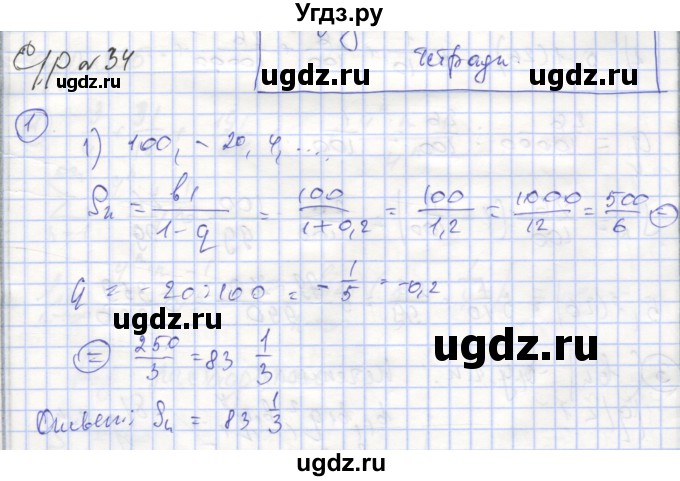 Угдз.ру
С/р № 34
ugdz.ru ugdz.ru
тетради.
①
1) 100, - 20, 4, ...
Sn = b1/1-q = 100/1+0,2 = 100/1,2 = 1000/12 = 500/6 =
q = - 20 : 100 = - 1/5 = -0,2
ugdz.ru ugdz.ru
= 250/3 = 83 1/3
Ответ: Sn = 83 1/3
ugdz.ru
ugdz.ru